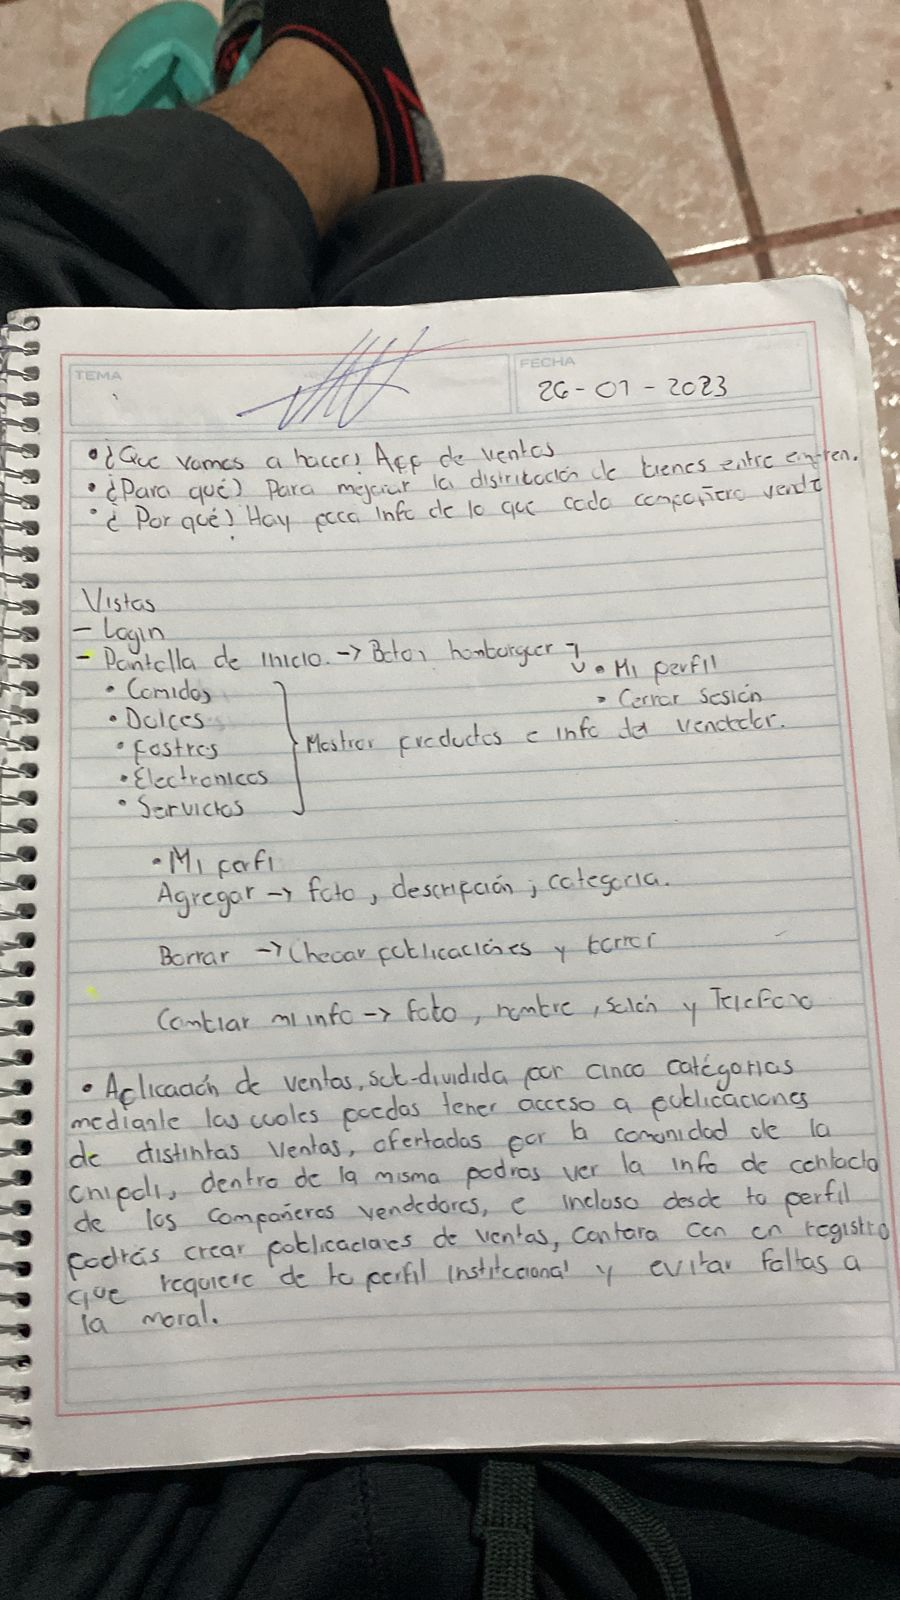 TEMA
FECHA
26-01-2023
• ¿Que vamos a hacer? App de ventas
• ¿Para qué? Para mejorar la distribución de bienes entre
• ¿Por qué? Hay poca info de lo que cada compañero vende
Vistas
- Login
- Pantalla de inicio. → Boton hamburger → • Mi perfil
• Cerrar sesión
• Comidas
• Dulces
• Postres
• Electronicos
• Servicios
Mostrar productos e info del vendedor.
• Mi perfi
Agregar → foto, descripción, categoria.
Borrar → Checar publicaciones y borrar
Cambiar mi info → foto, nombre, salón y Telefono
• Aplicación de ventas, sub-dividida por cinco catégorias
mediante las cuales puedas tener acceso a publicaciones
de distintas ventas, ofertadas por la comunidad de la
, dentro de la misma podras ver la info de contacto
de los compañeros vendedores, e incluso desde tu perfil
podrás crear publicaciones de ventas, contara con un registro
que requiere de tu perfil institucional y evitar faltas a
la moral.